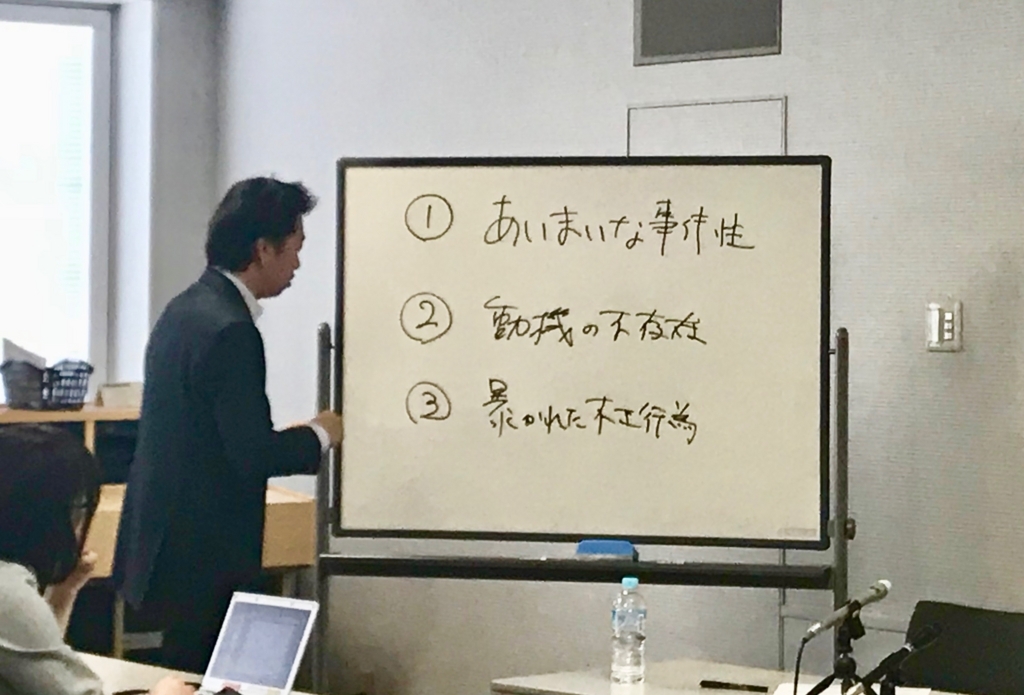 ① あいまいな事件性
② 動機の不存在
③ 暴かれた不正行為